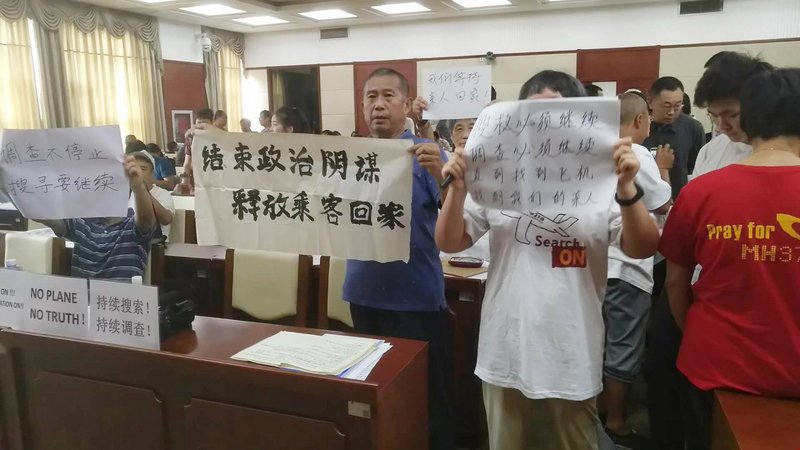 调查不停止
搜寻要继续
结束政治阴谋
释放乘客回家
我们等待
亲人回家!
维权必须继续
调查必须继续
直到找到飞机
找到我们的亲人
Search
ON
Pray for
MH37
ON !!!
ATION ON!!
NO PLANE
NO TRUTH!
持续搜索!
持续调查!